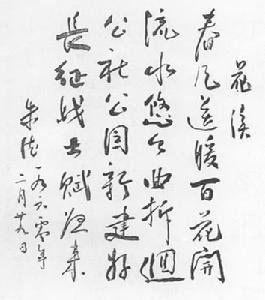 花溪
春风送暖百花開
流水悠々曲折迴
公社公园新建好
長征战士賦归来
朱德
一九六零年
二月廿九日